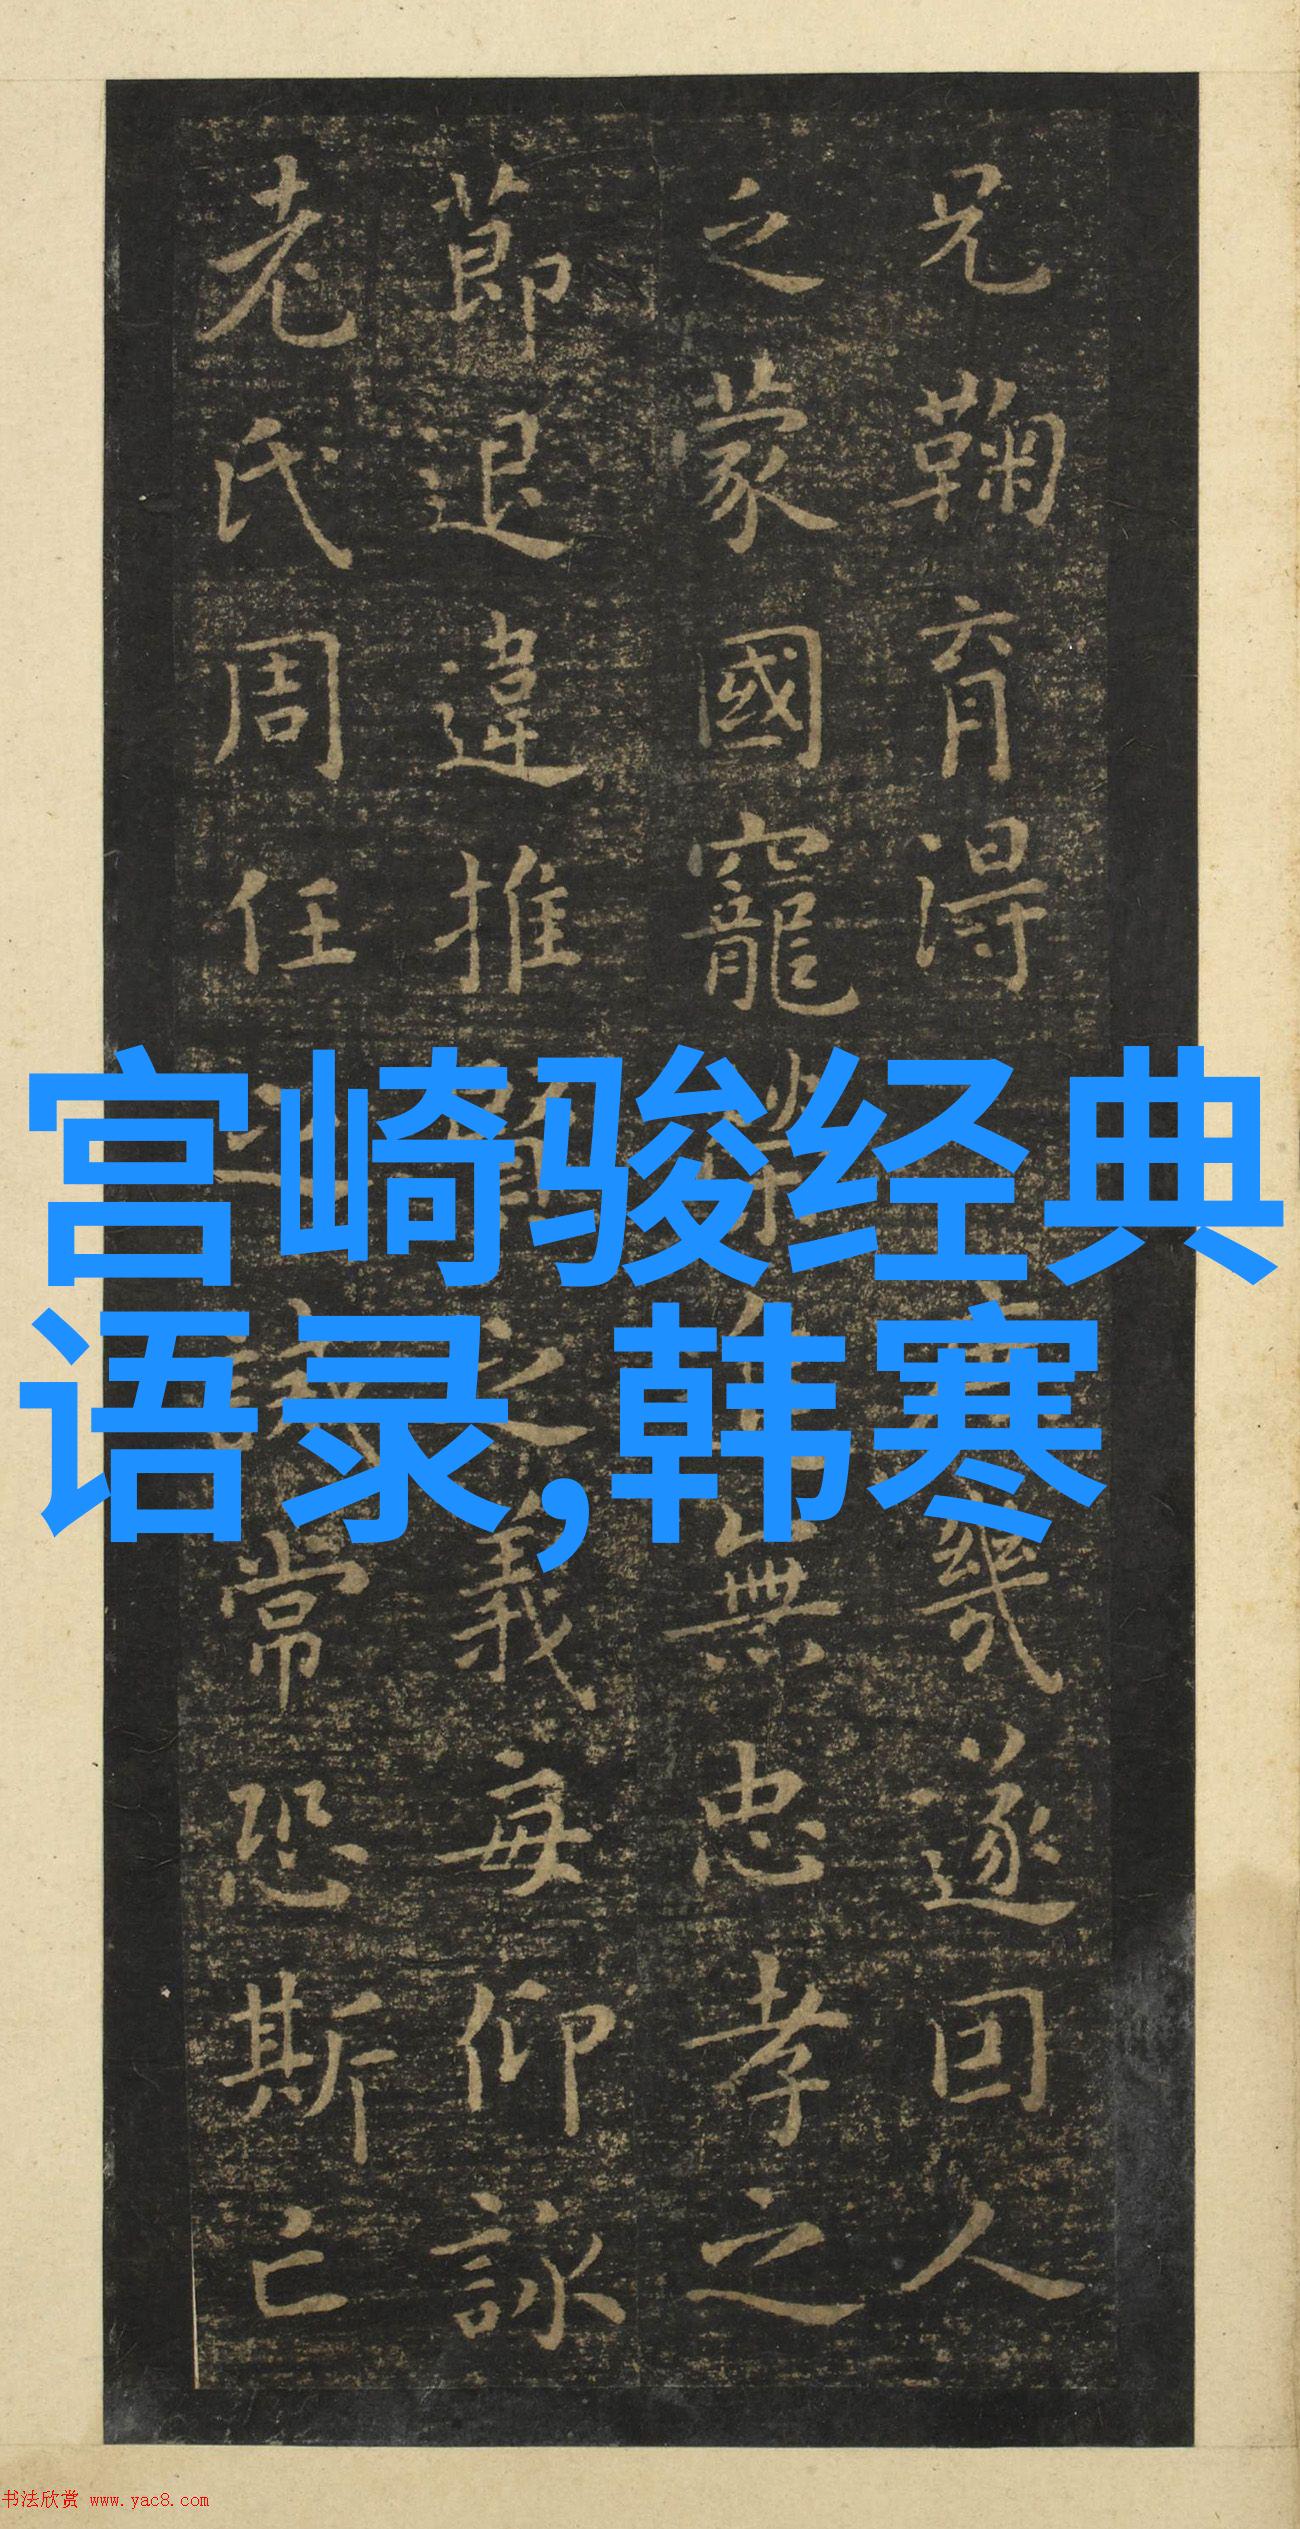 兄鞠育得
之蒙國寵
無忠孝之
幾遂回人
節退違推
之義每仰詠
老氏周任
常恐斯亡
宫崎骏经典
语录,韩寒
书法欣赏 www.yac8.com